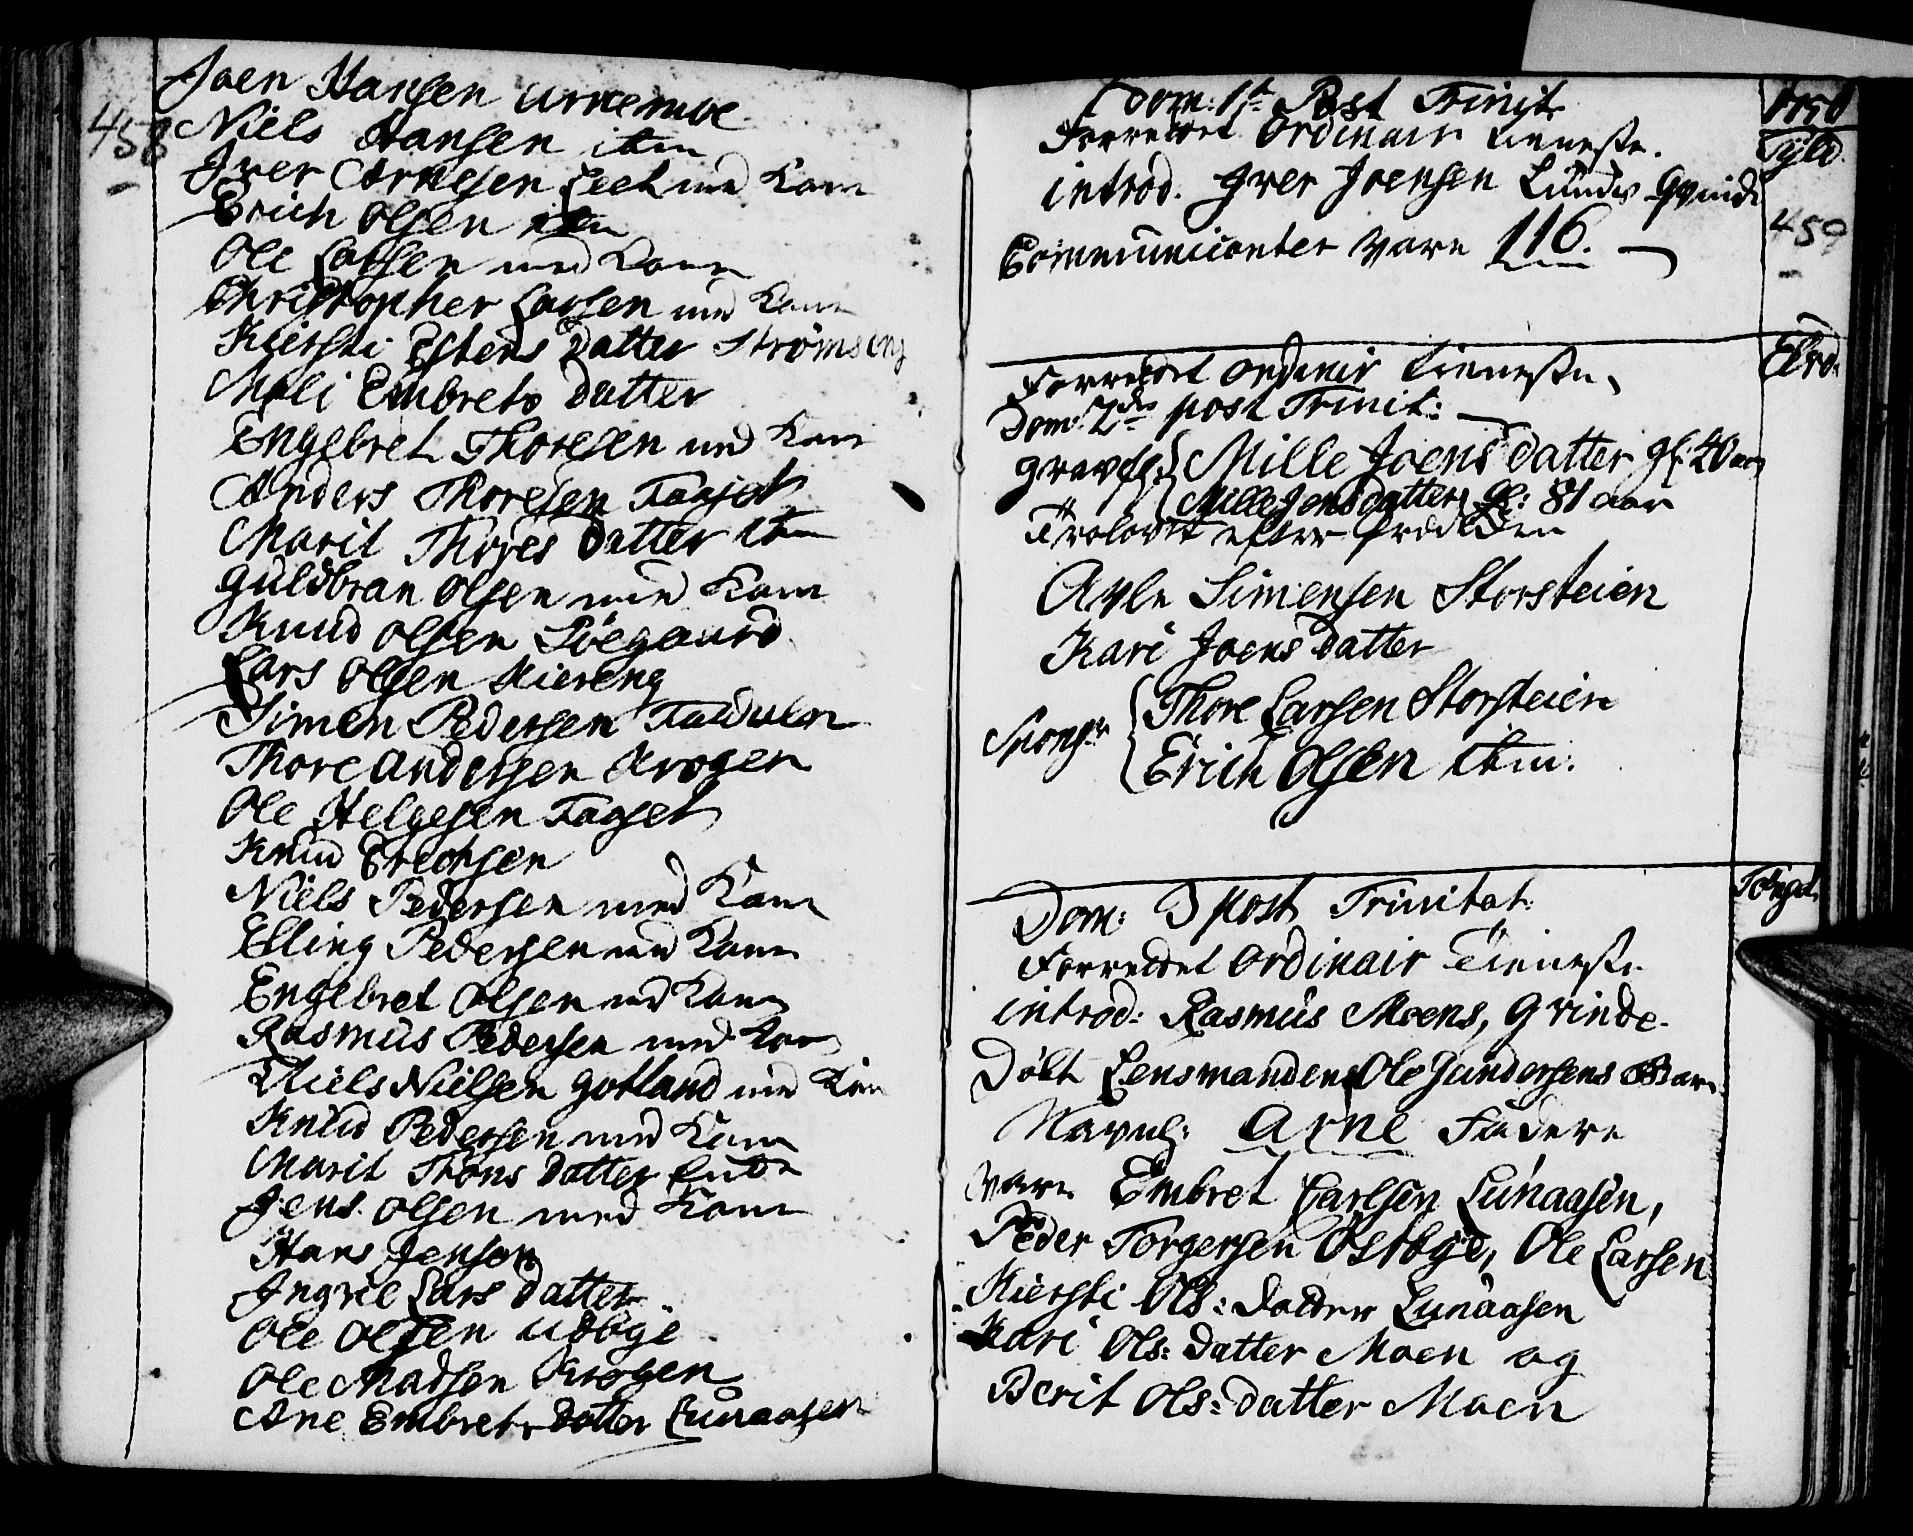 458
Joen Hansen urnemoe
Niels Hansen item
Iver Arnesen Leet med Kone
Erich Olsen item
Ole Larsen med Kone
Christopher Larsen med Kone
Kiersti Estens Datter Strømseng
Meli Embrets datter
Engebret Thoresen med Kone
Anders Thoresen
Marit Thores datter item
Guldbran Olsen med Kone
Knud Olsen Söegaard
Lars Olsen Kiereng
Simen Pedersen
Thore Andersen Krogen
Ole Helgesen
Knud Erichsen
Niels Pedersen med Kone
Elling Pedersen med Kone
Engebret Olsen med Kone
Rasmus Pedersen med Kone
Niels Nielsen Gotland med Kone
Knud Pedersen med Kone
Marit Thons datter
Jens Olsen med Kone
Hans Jensen
Ingrie Lars datter
Ole Olsen udbye
Ole Madsen Krogen
Ane Embrets datter Lunaasen
Dom: 1st Post Trinit:
Tyld.
Forrettet Ordinair tieneste.
introd. Iver Joensen Lunds Qvinde
459
Communicanter vare 116.
Elvd.
Forrettet ordinair tieneste.
Dom: 2den post Trinit:
gravf: Mille Joens datter gl: 40 aar
Mille Jonsdatter gl: 81 aar
Trolovet efter
Avle Simensen Storsteien
Kari Joens datter
Spons: Thore Larsen Storsteien
Erich Olsen item.
Töngd.
Dom: 3 post Trinitat:
Forrettet Ordinair Tieneste
introd: Rasmus Moens, Qvinde.
Döbt Lensmanden Ole Gundersens Barn
Navnl: Arne Faddere
vare Embret Carlsen Lunaasen,
Peder Torgersen Ostbye, Ole Larsen
Kiersti Ols: Datter Lunaasen
Kari Ols: datter Moen og
Berit Ols: datter Moen